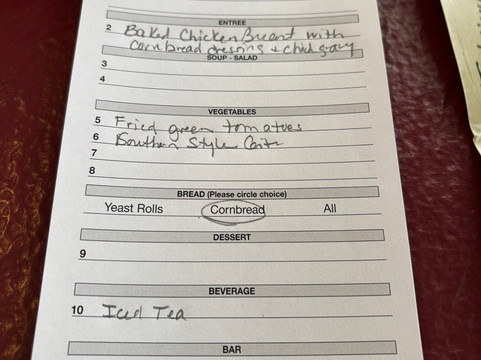 ENTREE
2 Baked Chicken Breast with
Cornbread dressing + chick gravy
SOUP - SALAD
3
4
VEGETABLES
5 Fried green tomatoes
6 Southern Style
7
8
BREAD (Please circle choice)
Yeast Rolls Cornbread All
DESSERT
9
BEVERAGE
10 Iced Tea
BAR